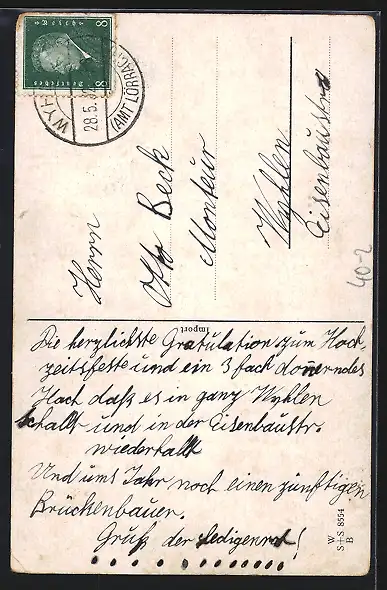 8 8
Deutsches Reich
WYH
28.5.3
(AMT LÖRRAC
Herrn
Otto Beck
Monteur
Wyhlen
Eisenbaustrs
40-2
Import
Die herzlichste Gratulation zum Hoch,
zeitsfeste und ein 3 fach don̄erndes
Hoch daß es in ganz Wyhlen
schallt und in der Eisenbaustr.
wiederhallt
Und ums Jahr noch einen zünftigen
Brückenbauer.
Gruß der Ledigenrat!
W
S+S 8554
B